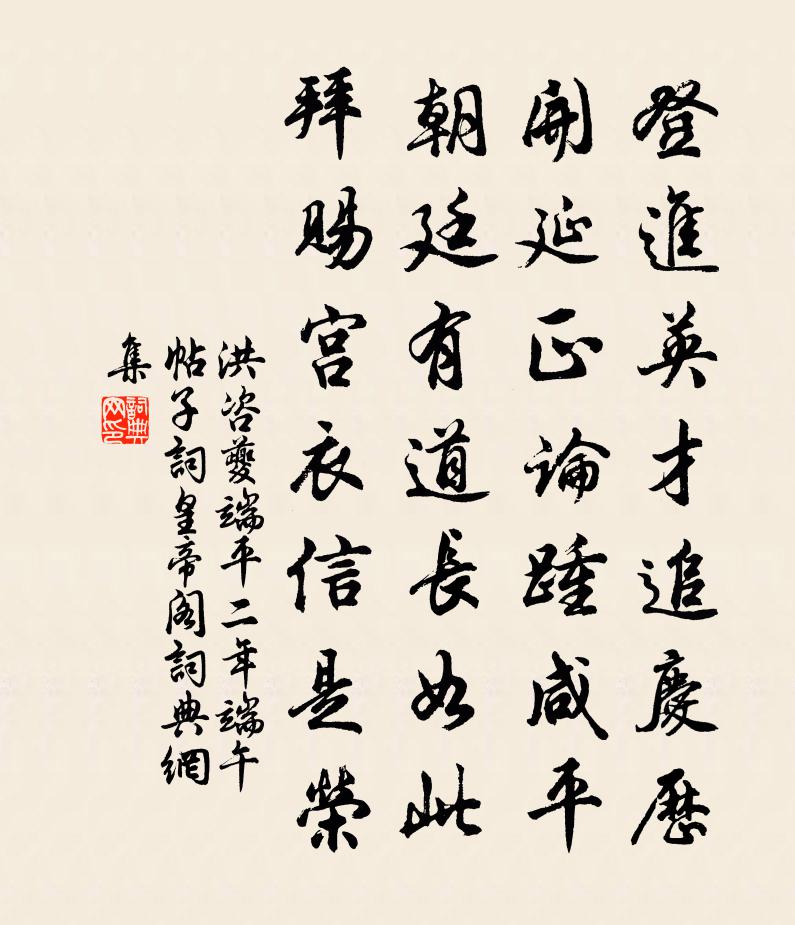 登進英才追慶歷
開延正論踵咸平
朝廷有道長如此
拜賜宮衣信是榮
洪咨夔端平二年端午
帖子詞皇帝閣詞典網
集
詞典
网印